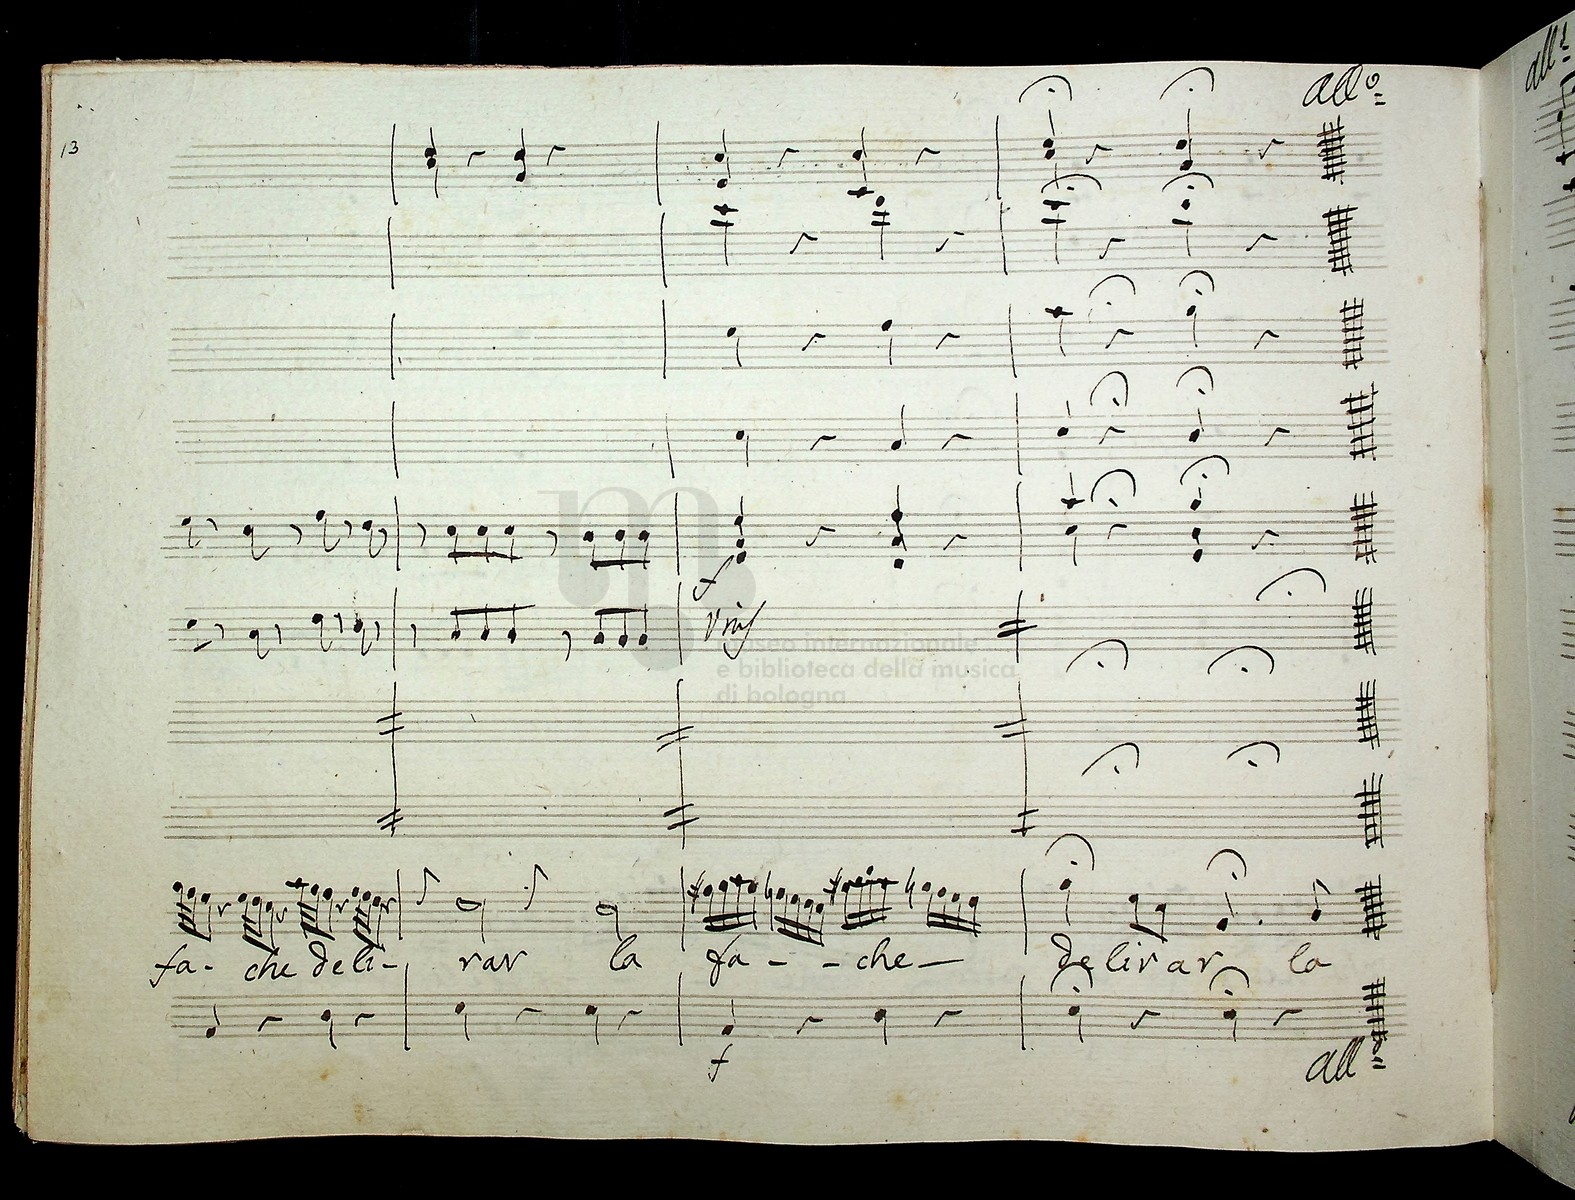 all.º
13
f
Viol
museo internazionale
e biblioteca della musica
di bologna
fa- che deli- rar la fa - - che - delirar la
f
all.º
all.º